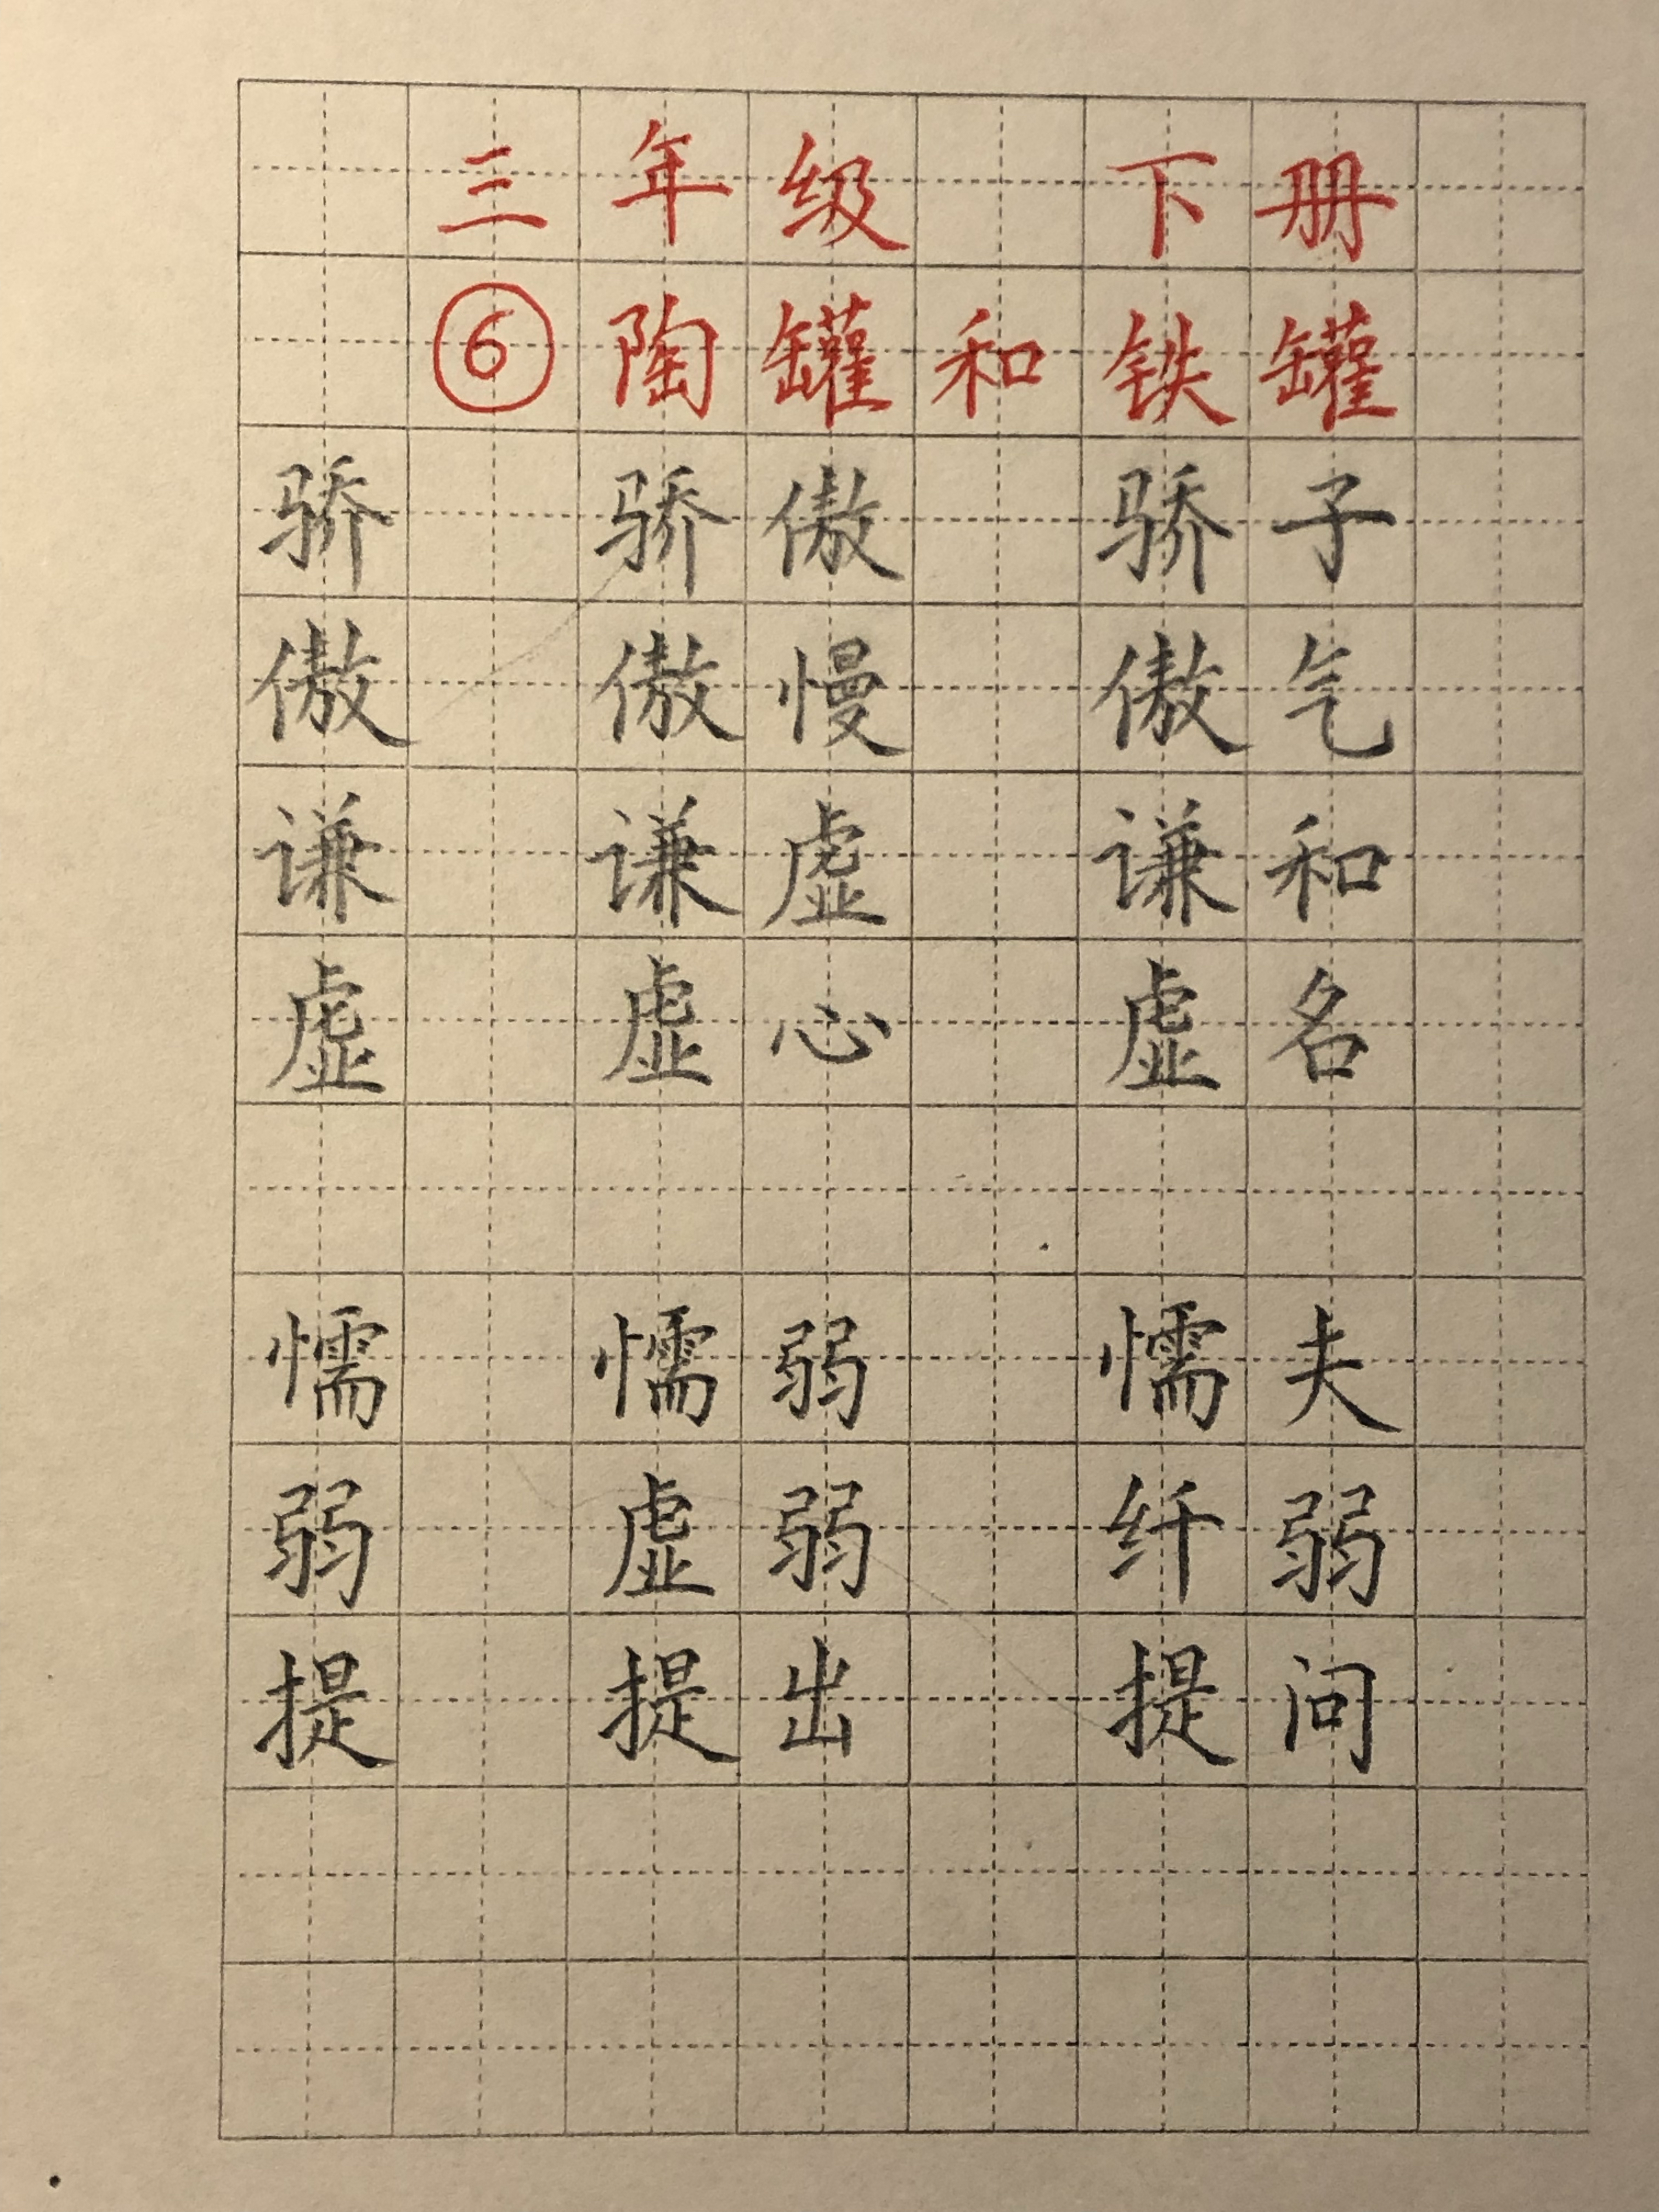 三年级 下册
⑥陶罐和铁罐
骄 骄傲 骄子
傲 傲慢 傲气
谦 谦虚 谦和
虚 虚心 虚名
懦 懦弱 懦夫
弱 虚弱 纤弱
提 提出 提问